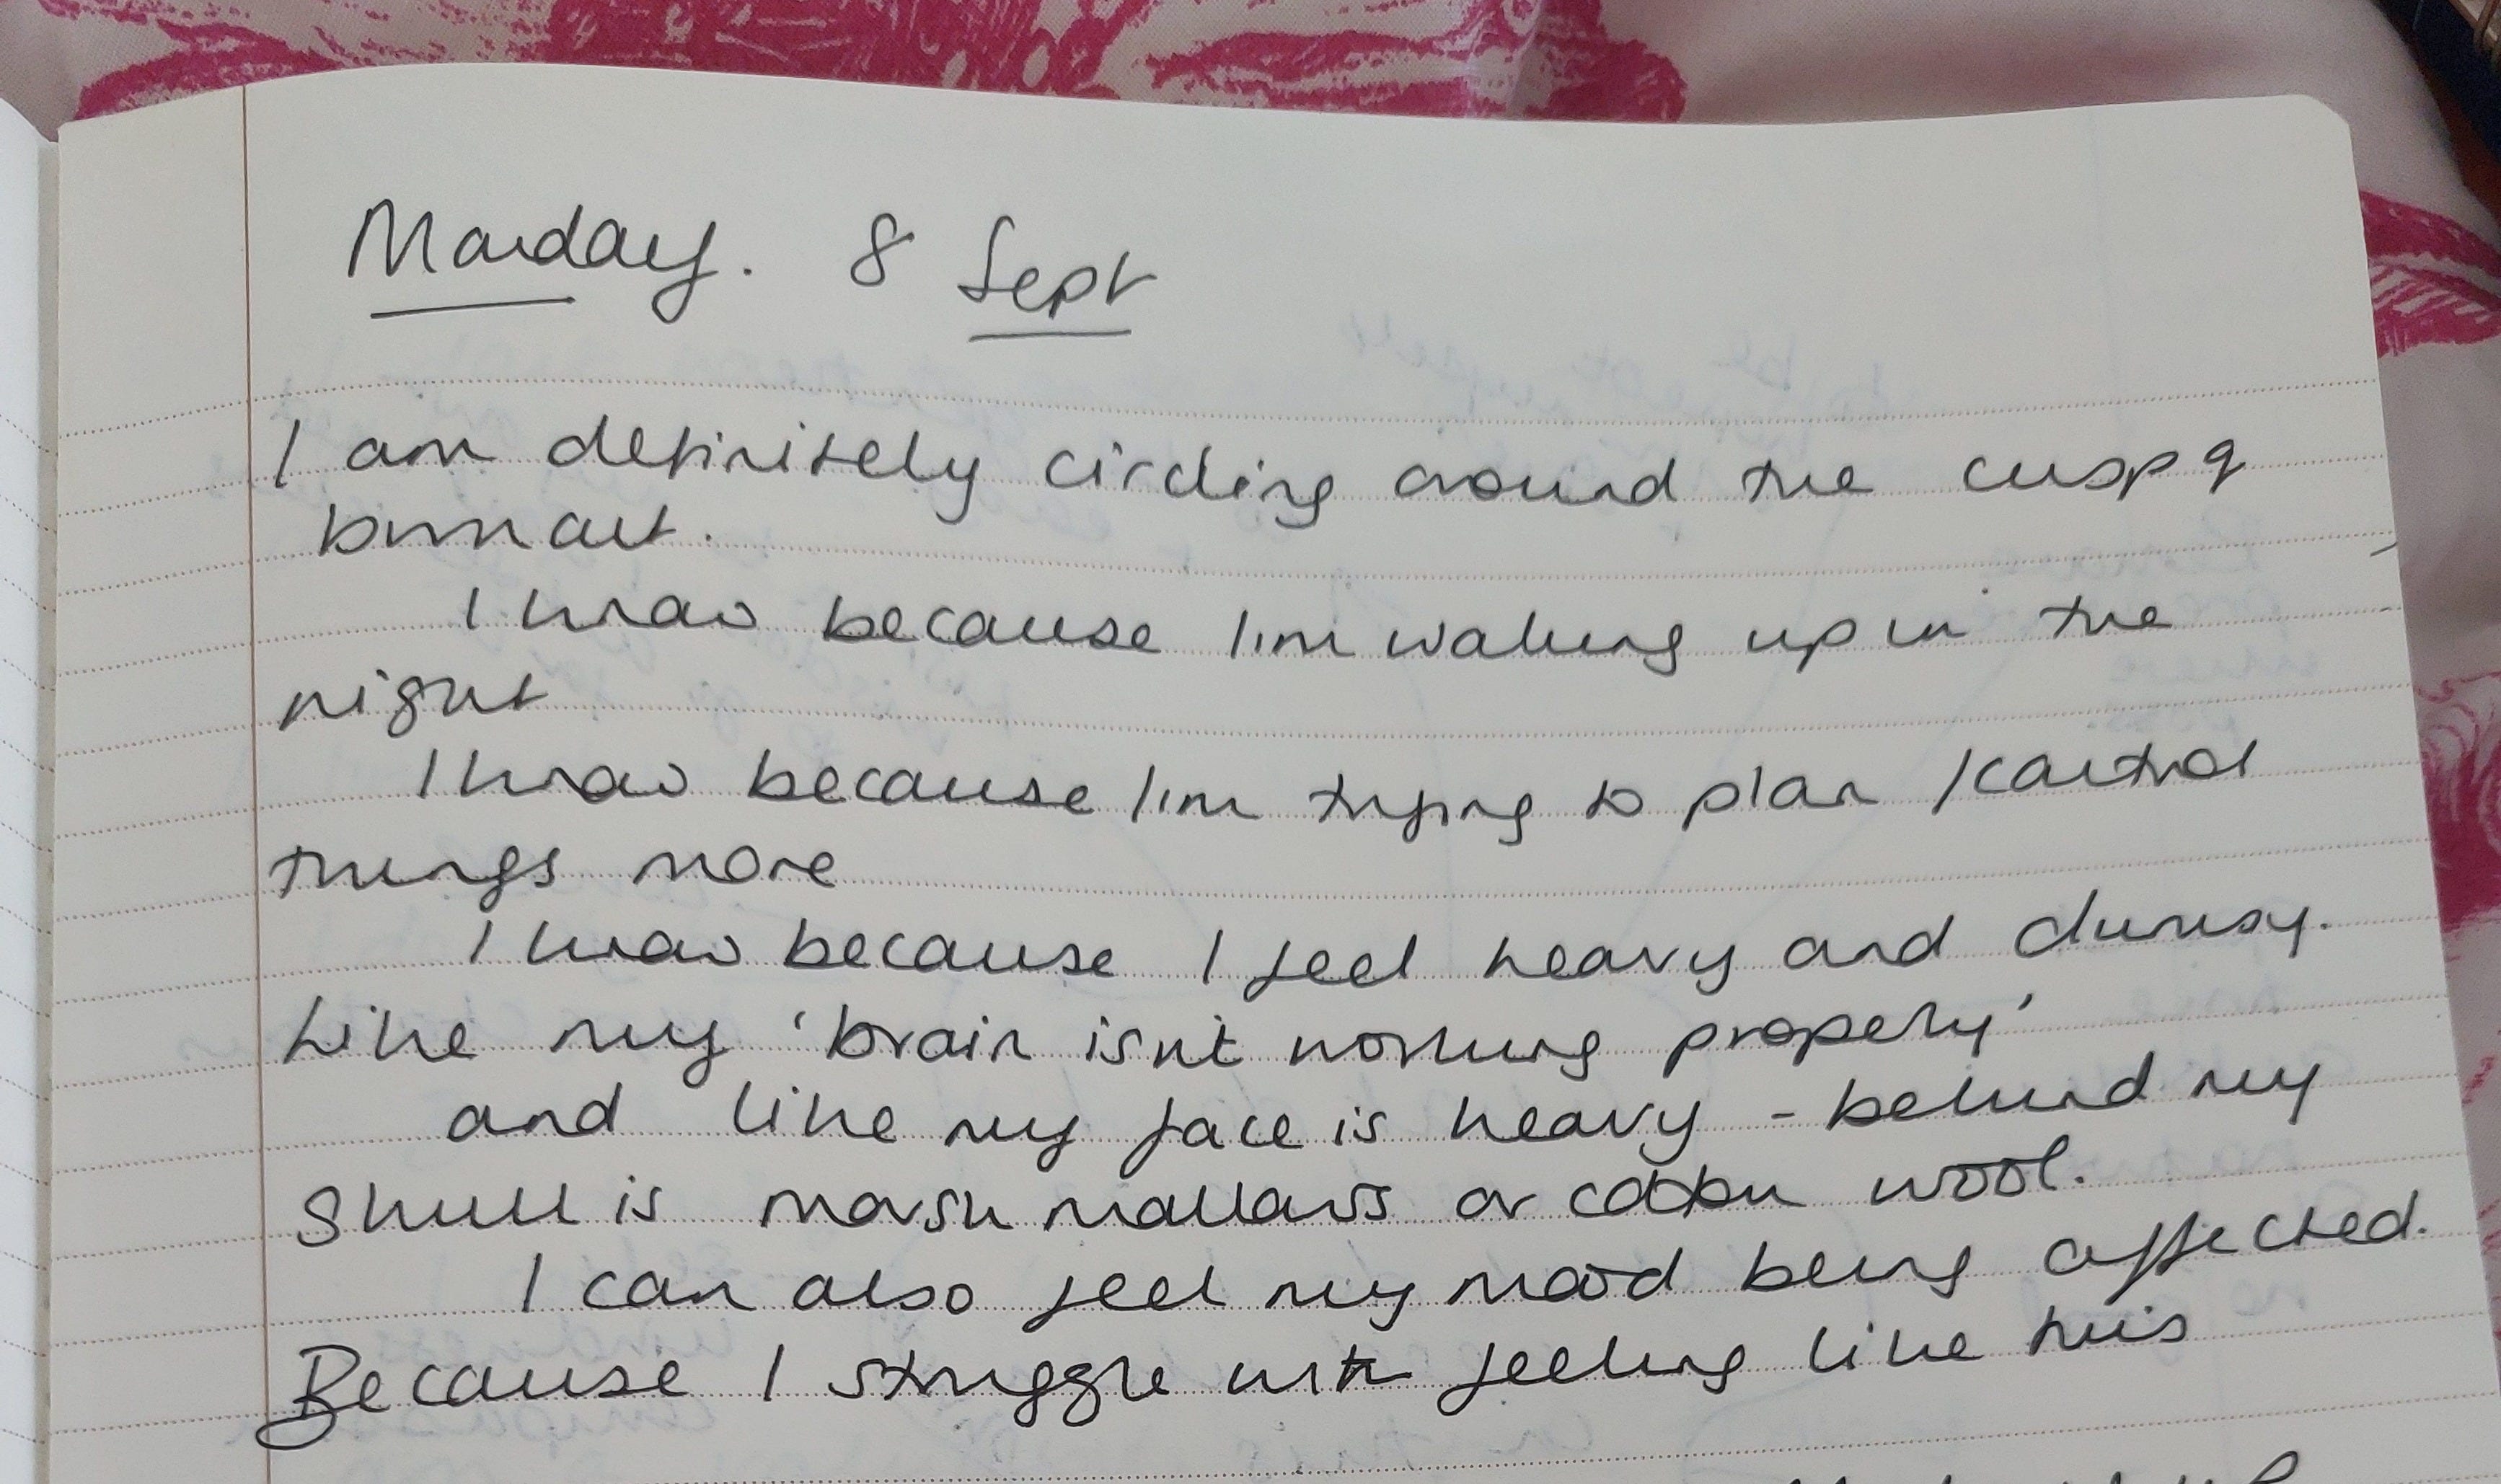 Monday. 8 Sept
I am definitely circling around the cusp of
burnout.
I know because I'm waking up in the
night
I know because I'm trying to plan / control
things more
I know because I feel heavy and clumsy.
Like my 'brain isn't working properly'
and like my face is heavy - behind my
skull is marshmallows or cotton wool.
I can also feel my mood being affected.
Because I struggle with feeling like this